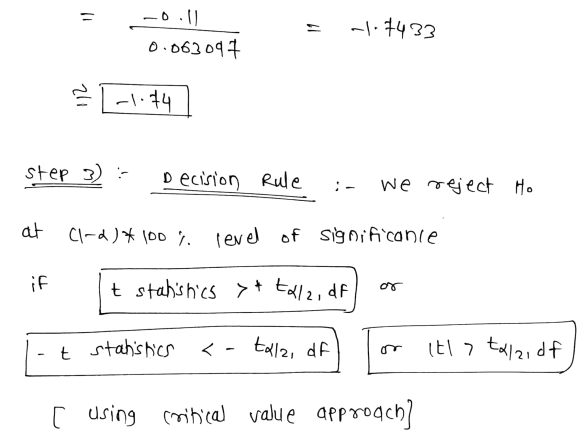 = -0.11 / 0.063097 = -1.7433
≅ -1.74
step 3) :- Decision Rule :- We reject H₀
at (1-α)*100 %. level of significance
if t statistics > + tα/2, df or
- t statistics < - tα/2, df or |t| > tα/2, df
[ using critical value approach]